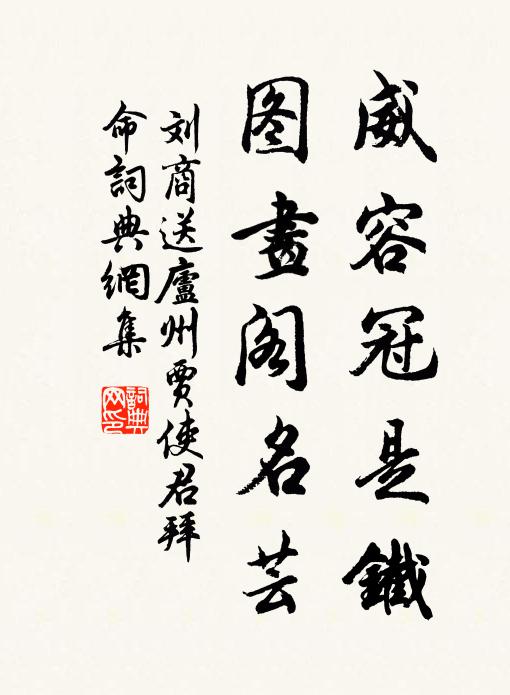 威容冠是鐵
图畫阁名芸
刘商送廬州賈使君拜
命詞典網集
詞典网印